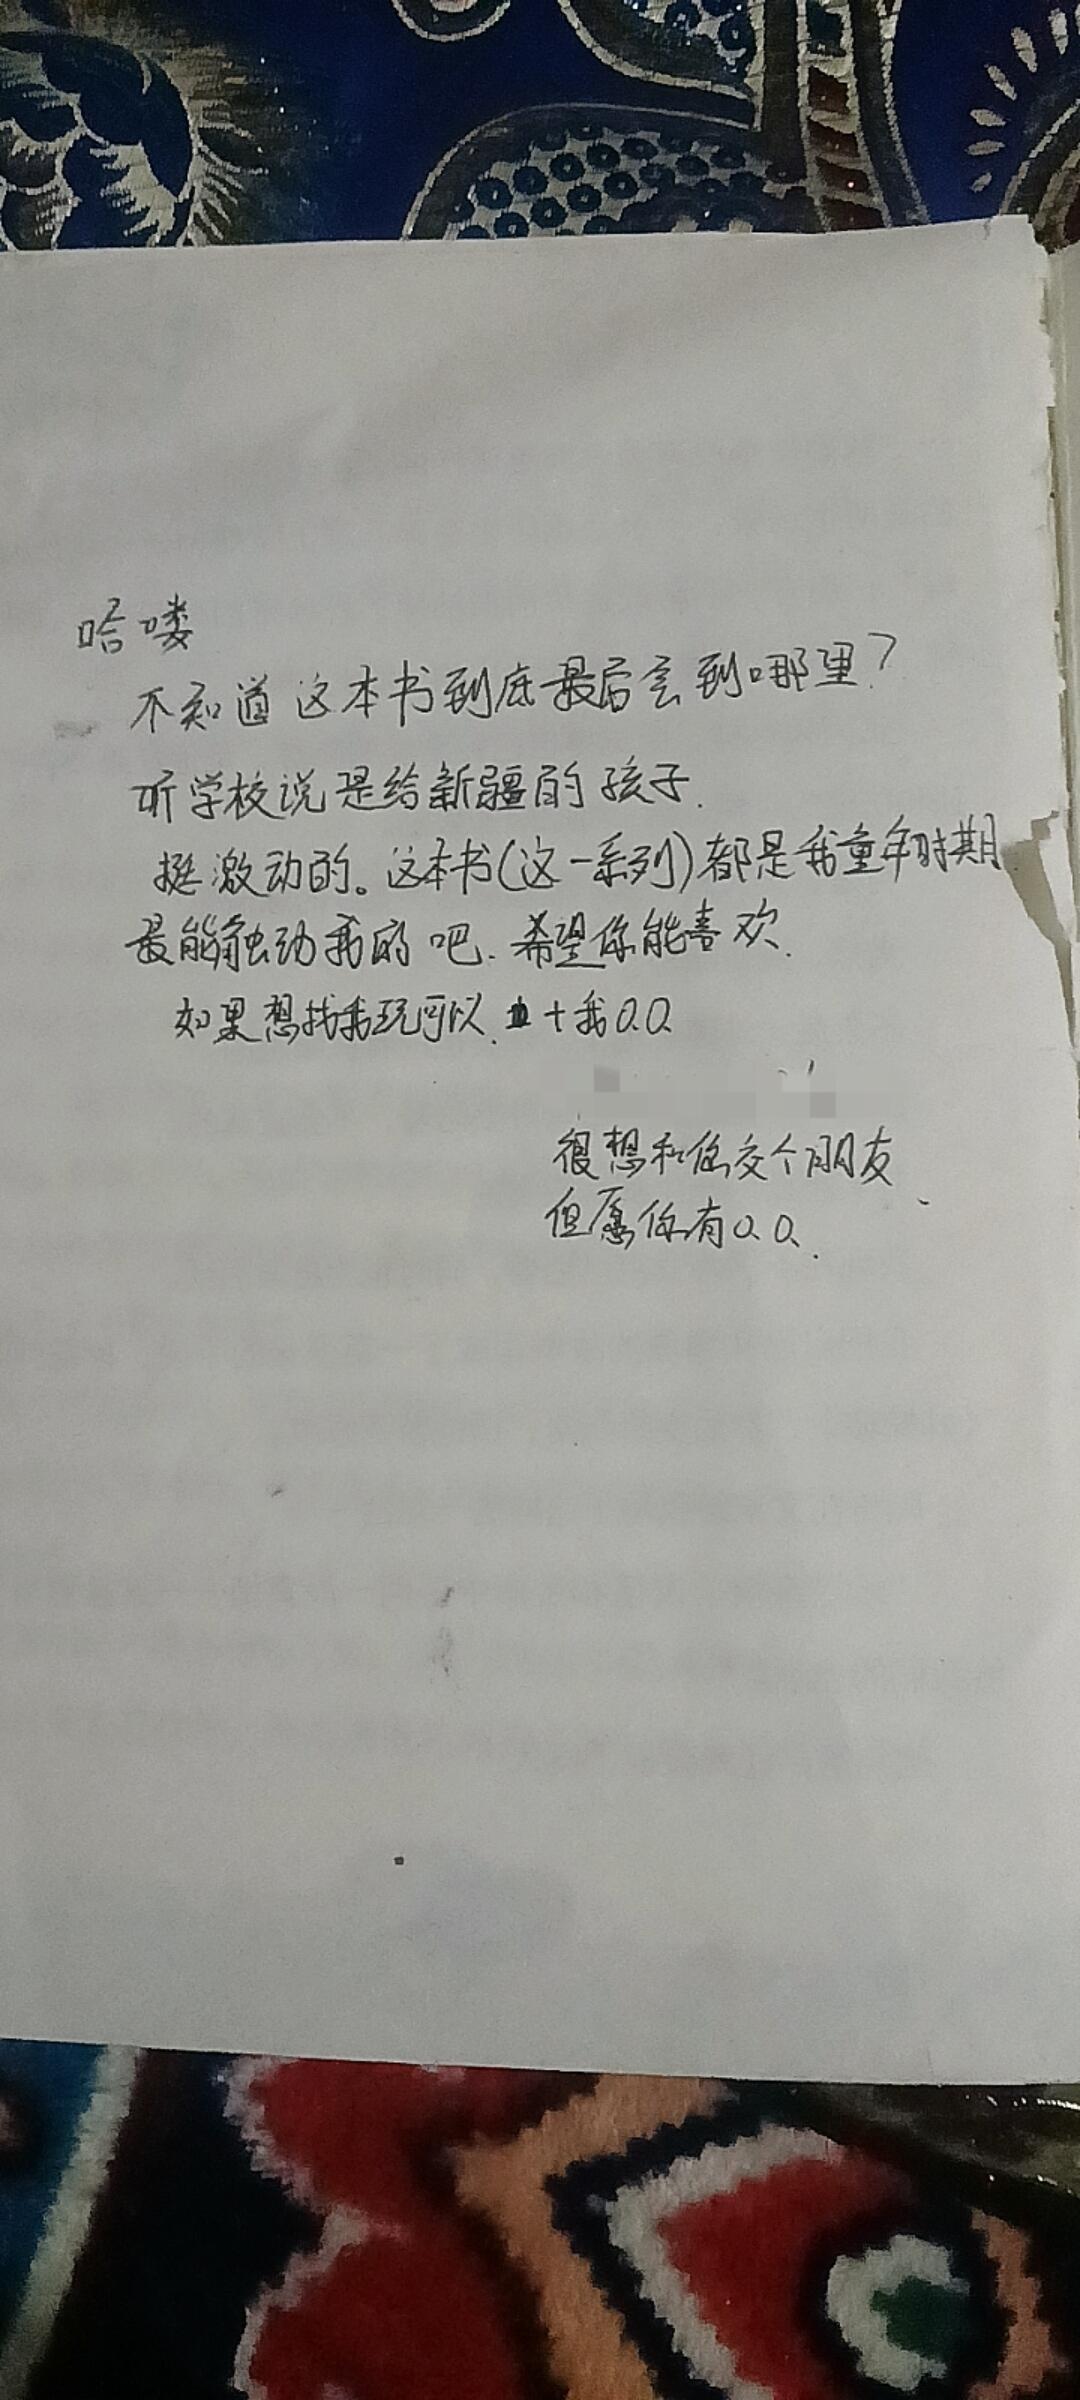 哈喽
不知道这本书到底最后会到哪里？
听学校说是给新疆的孩子.
挺激动的。这本书(这一系列)都是我童年时期
最能触动我的吧.希望你能喜欢.
如果想找我玩可以.+我Q.Q.
很想和你交个朋友
但愿你有Q.Q.